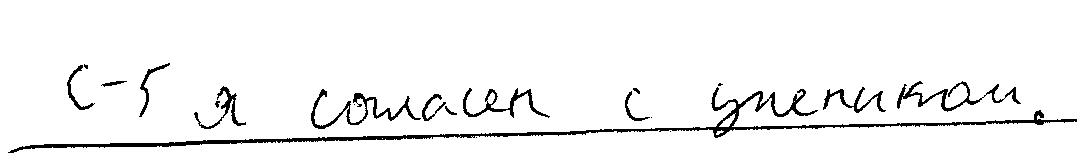 С-5 я согласен с учеником.